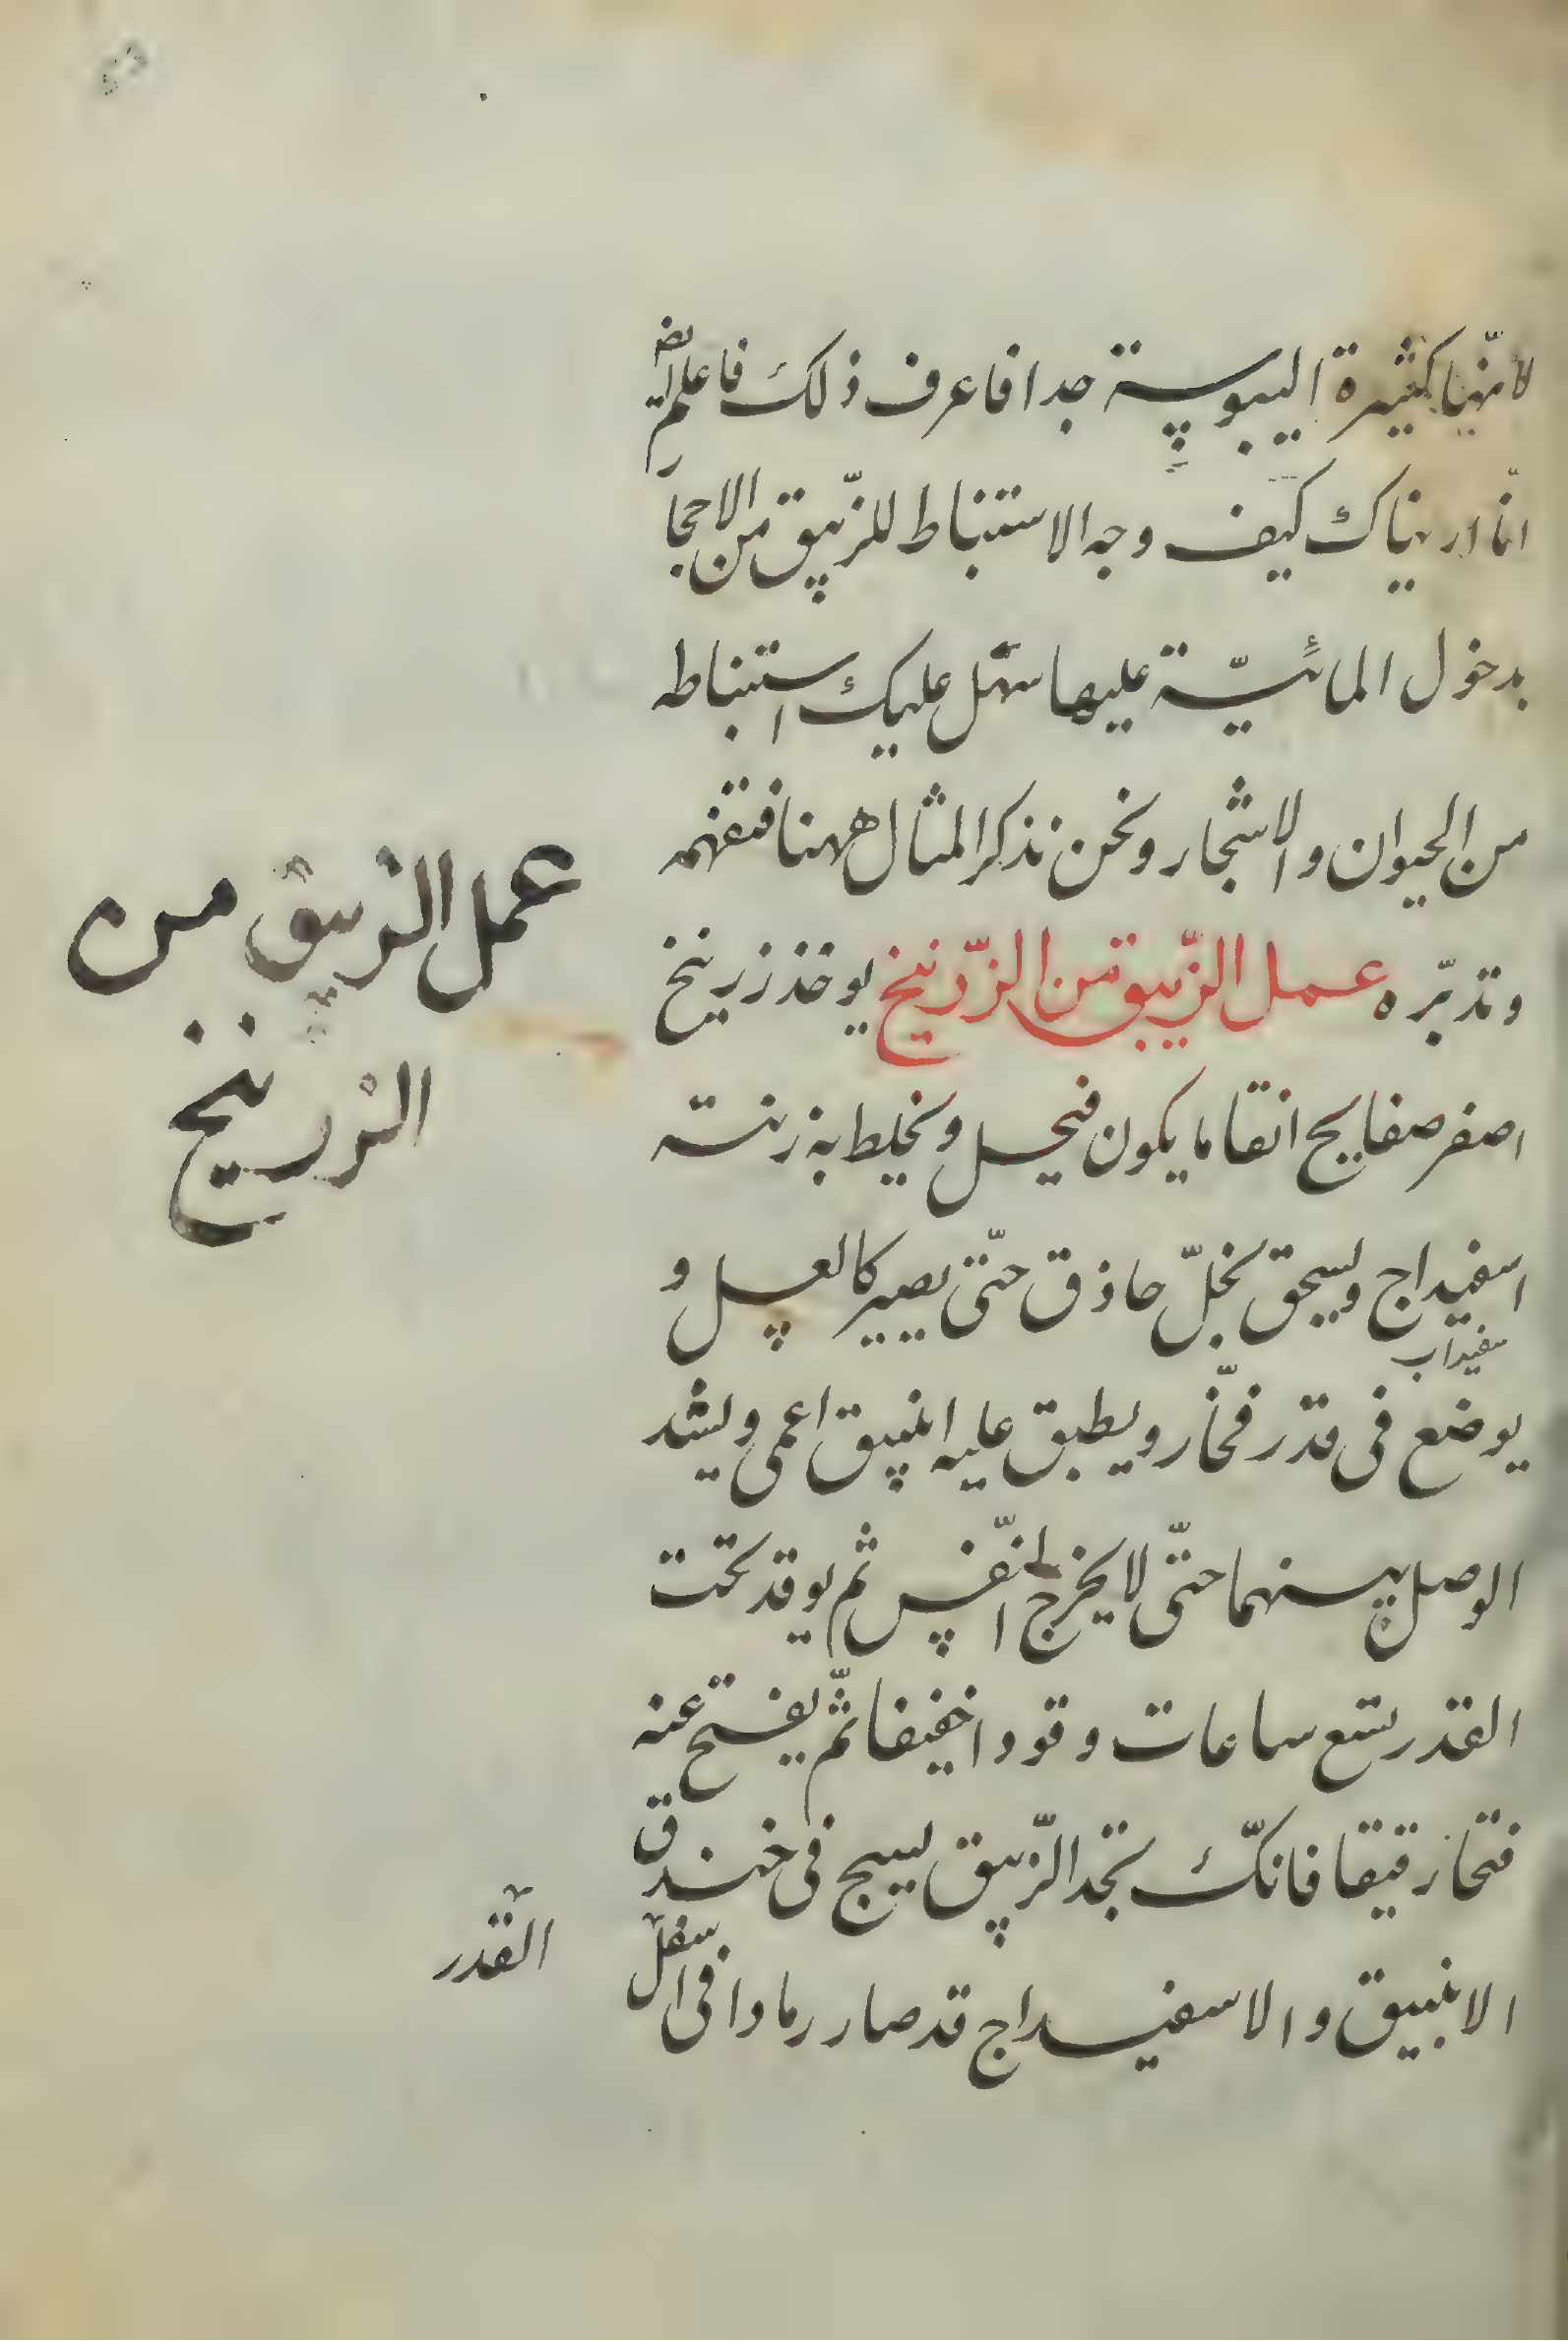 لانّها كثيرة اليبوسة جدا فاعرف ذلك فاعلم ايض
انّا اريناك كيف وجه الاستنباط للزّيبق من الاحجار
بدخول المائيّة عليها سهّل عليك استنباطه
من الحيوان والاشجار ونحن نذكر المثال ههنا فتفهمه
وتدبّره عمل الزّيبق من الزّرنيخ يوخذ زرنيخ
اصفر صفايح انقا ما يكون فيحل ويخلط به زنته
اسفيداج ويسحق بخلّ حاذق حتّى يصير كالعسل و
سفيداب
يوضع فى قدر فخّار ويطبق عليه انبيق اعمى ويشد
الوصل بينهما حتّى لا يخرج النّفس ثم يوقد تحت
القدر تسع ساعات وقودا خفيفا ثمّ يفتح عنه
فتحا رقيقا فانّك تجد الزّيبق يسبح فى خندق
الانبيق والاسفيداج قد صار رمادا فى اسفل
القدر
عمل الزيبق من
الزرنيخ